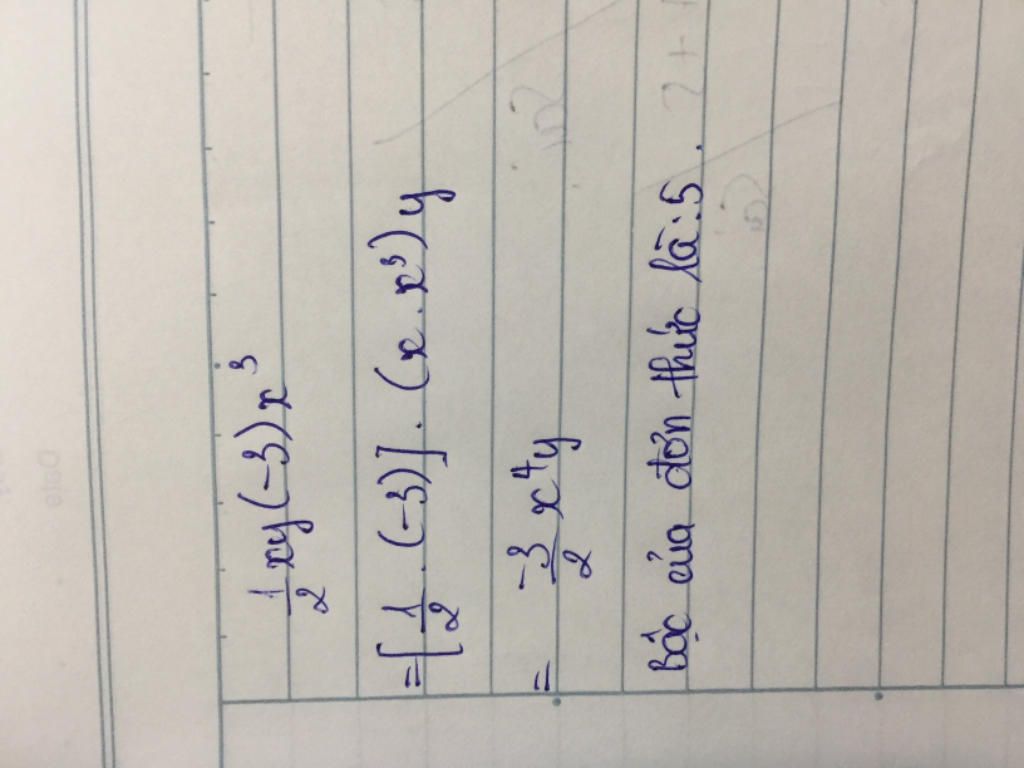 1/2 xy(-3)x³
= [1/2 . (-3)] . (x . x³) y
= -3/2 x⁴y
Bậc của đơn thức là : 5 .